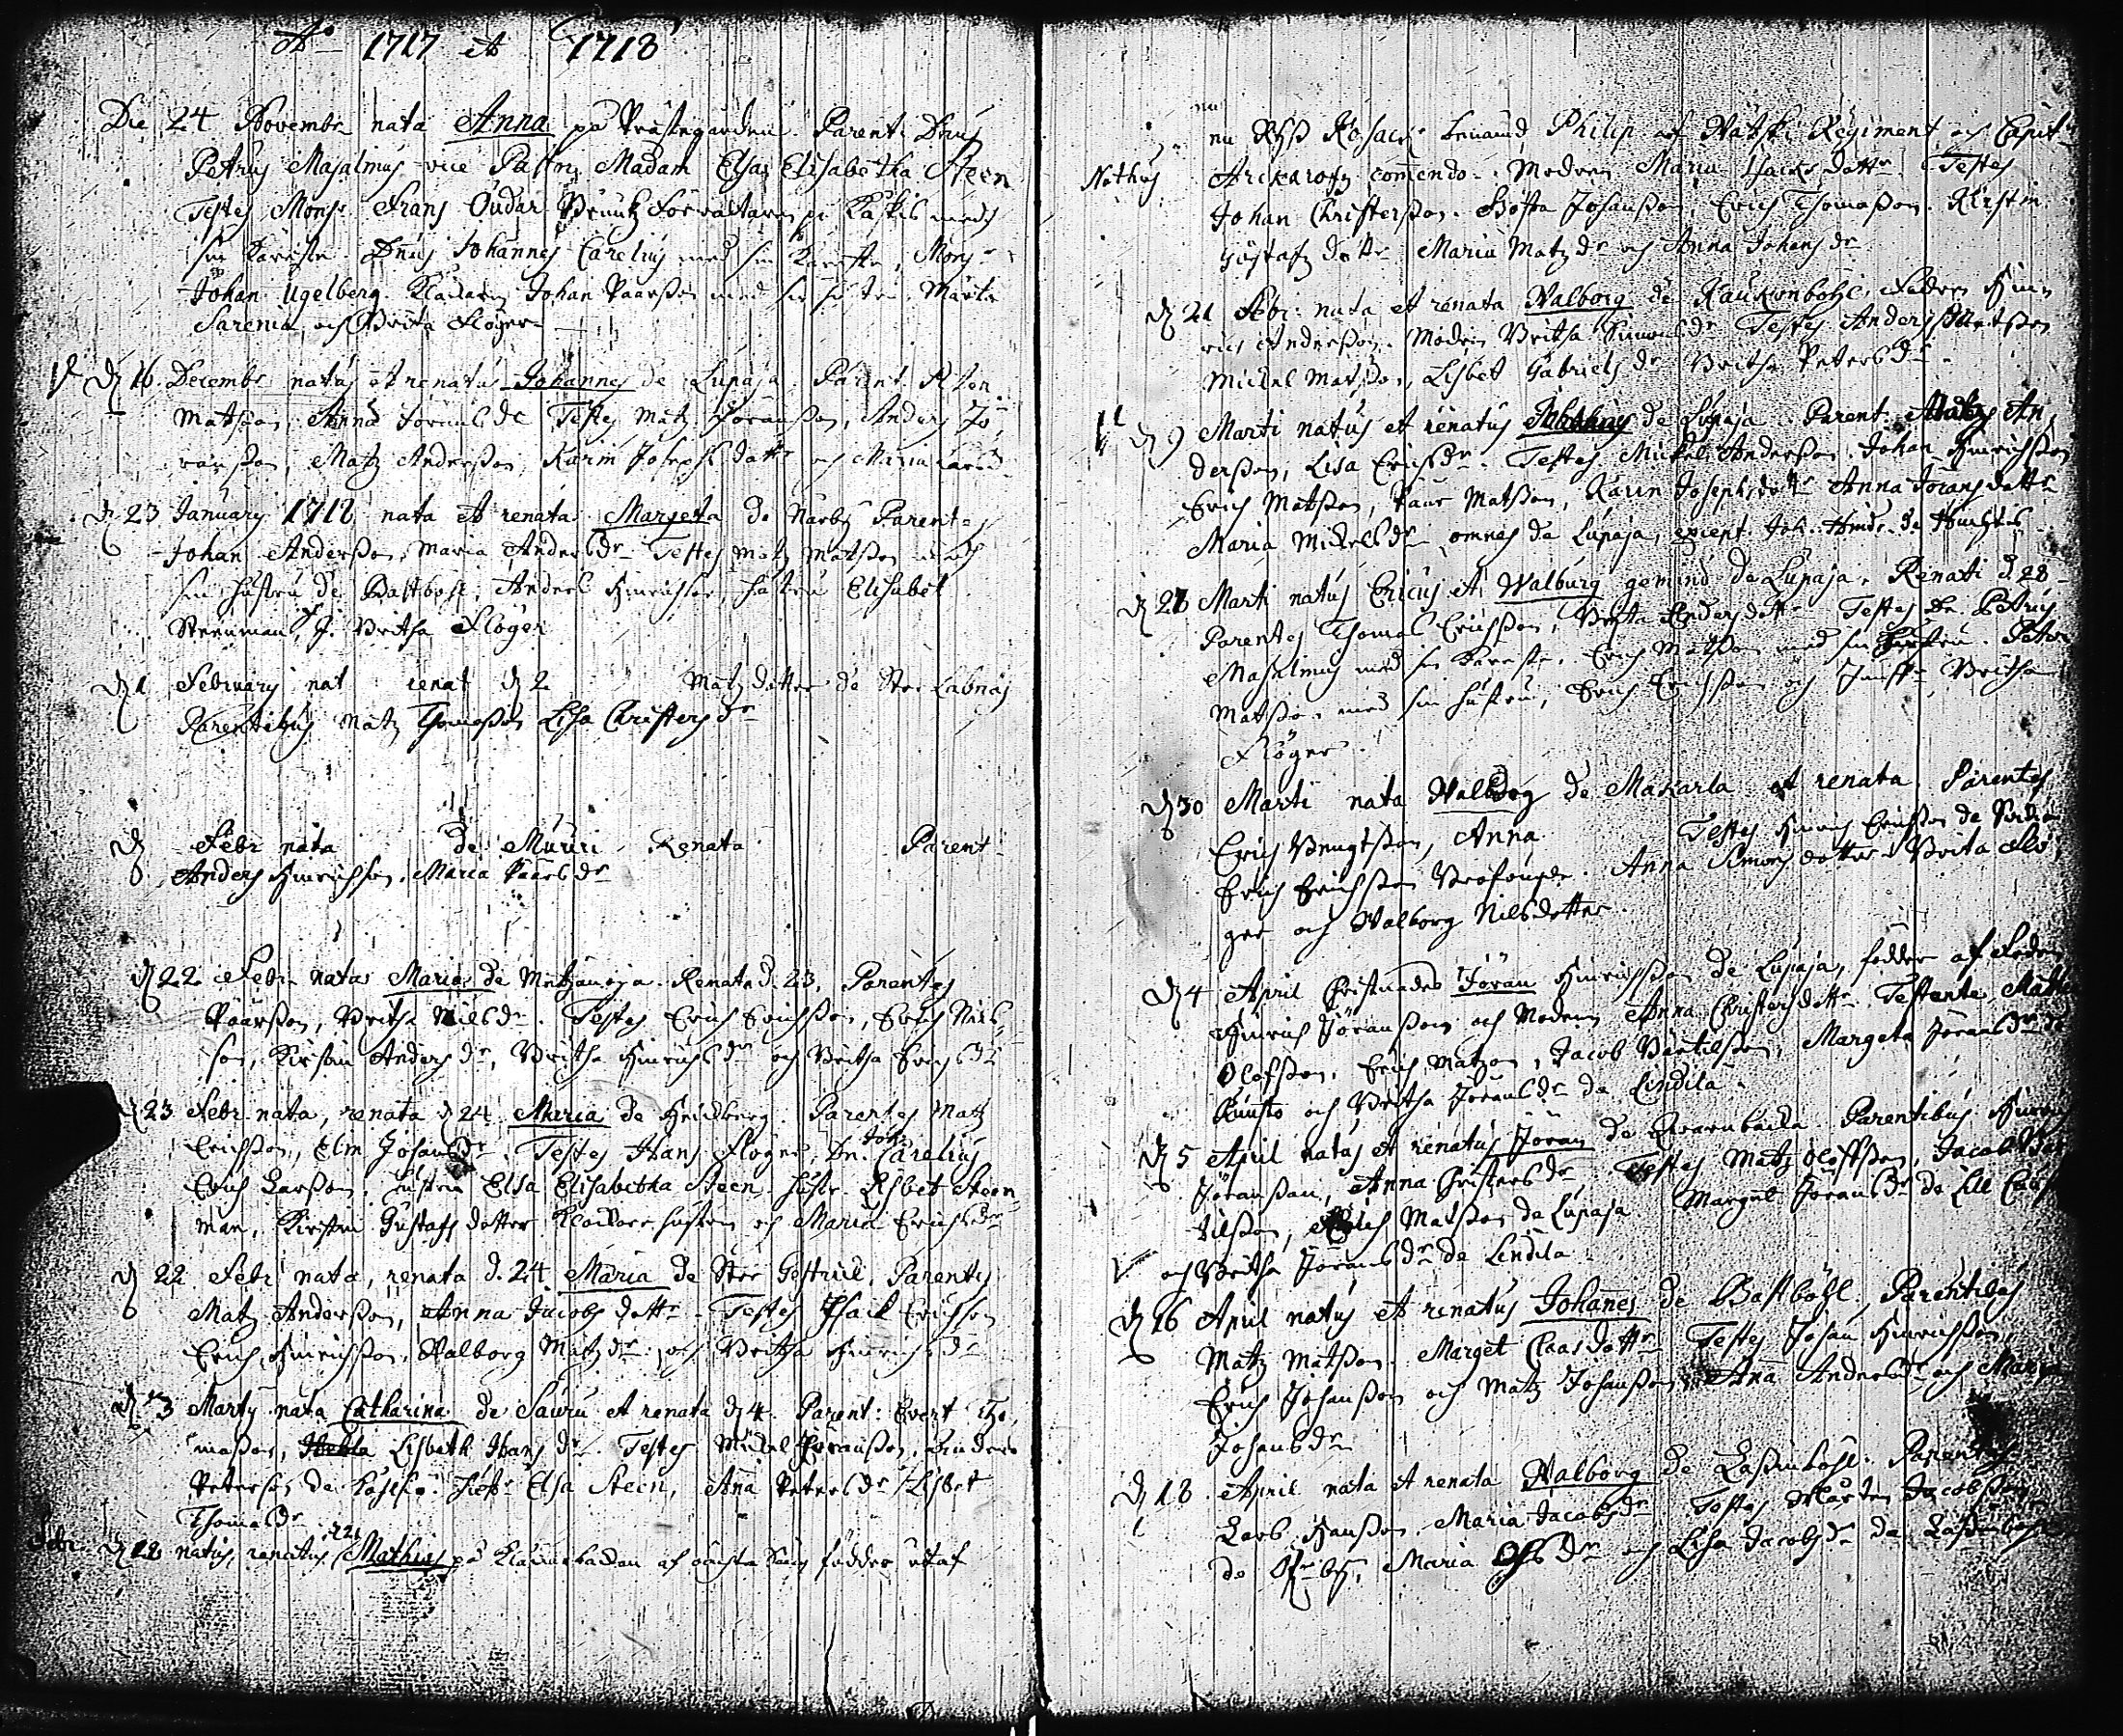 Ao 1717 et 1718
Die 24 Novembr nata Anna på Prästegården. Parent: Dnus
Petrus Masalinus vice Pastor, Madam Elsa Elisabetha Steen
Testes Mons. Frans Oudar Bruuks Förvaltaren på Kåskis med
sin Käresta. Dnus Johannes Carelius med sin Käresta, Mons
Johan Ugelberg. Klåckaren Johan Påarsson med sin hustru Märta
Sarenia och Brita Flöger
D 16 Decembr natus et renatus Johannes de Lupaja. Parent.
Matsson, Anna Jöransdr Testes Matz Jöransson, Anders Jö
ransson, Matz Andersson, Karin Josephsdottr och Maria
D 23 January 1718 nata et renata Margeta de Närby Parentes
Johan Andersson, Maria Andersdr Testes Matz Matsson med
sin hustru de Bastböhl, Anders Hinrichsson, hustru Elisabet
Steenman, J. Britha Flöger
D 1 February nat renat D 2 Matzdotter de Stor Labnäs
Parentibus Matz Thomasson Lisa Christersdr
D Febr nata de Muuri Renata Parent
Anders Hinrichsson. Maria Påarsdr
D 22 Febr. nata Maria de Metzänoja. Renata d. 23. Parentes
Påarsson, Britha Nilsdr. Testes Erich Erichsson, Erich Nils
son, Kirstin Andersdr, Britha Hinrichsdr och Britha Erichsdr
23 Febr. nata, renata D 24 Maria de Heidberg Parentes Matz
Erichsson, Elin Johansdr. Testes Hans Flöger, Dn. Joh. Carelius
Erich Larsson, hustru Elsa Elisabetha Steen, hustr. Lisbet Steen
man, Kirstin Gustafs dotter Klåckars hustru och Maria Erichsdr
D 22 Febr nata, renata d. 24 Maria de Stor Gestrud. Parentes
Matz Andersson, Anna Jacobs dottr Testes Isack Erichsson
Erich Hinrichsson, Walborg Matzdr och Britha Hinrichsdr
D 3 Marty nata Catharina de Sauru et renata D 4. Parent: Evert Tho
masson, Lisbeth Hansdr Testes Mickel Jöransson, Anders
Petersson de Kåskis Elsa Steen, Ana Petersdr Lisbet
Thomasdr
Febr. D natus, renatus 22 Mathias på Klåckarebacken af fader utaf
nu
nu Ryss Kosack benämnd Philip af Regiment och Capit
Nothus Arikarofz comendo. Modren Maria Isacksdottr Testes
Johan Christersson. Gösta Johansson, Erich Thomasson. Kirstin
Göstafz dottr Maria Matzdr och Anna Johansdr
D 21 Febr: nata et renata Walborg de Raukonböhle, Fadren Hin
rich Andersson. Modren Britha Simonsdr Testes Anders Matsson
Mickel Matsson, Lisbet Gabrielsdr Britha Petersdr
D 9 Marti natus et renatus de Lupaja. Parent. Matz An
dersson, Lisa Erichsdr. Testes Mickel Andersson, Johan Hinrichsson
Erich Matsson, Påar Matsson, Karin Josephsdottr Anna Jöransdottr
Maria Mickelsdr omnes de Lupaja, except. Joh. Hindr. de
D 28 Marti natus Ericus et Walburg gemini de Lupaja. Renati d. 28
Parentes Thomas Erichsson, Brita Andersdottr Testes Dn. Petrus
Masalinus med sin Käresta, Erich Matsson med sin hustru, Peter
Matsson med sin hustru, Erich Erichsson och Jungfr Britha
Flöger
D 30 Marti nata Walborg de Makarla et renata Parentes
Erich Bengtsson, Anna Testes Hinrich Erichsson de
Erich Erichsson. Anna Simonsdotter Brita Flö
ger och Walborg Nilsdotter
D 4 April Christnades Jöran Hinrichsson de Lupaja, födder af Fadren
Hinrich Jöransson och Modren Anna Christersdottr. Testente Matts
Olofsson, Erich Matzon, Jacob Bertilsson, Margeta Jöransdr de
Runsto och Britha Jöransdr de Lindila
D 5 April natus et renatus Jöran de Qvarnbacka. Parentibus Hinrich
Jöransson, Anna Christersdr, Testes Matz Olofsson, Jacob Ber
tilsson, Erich Matsson de Lupaja Marget Jöransdr de Lill
och Britha Jöransdr de Lindila
D 16 April natus et renatus Johanes de Bastböhl. Parentibus
Matz Matsson. Marget Claasdottr Testes Johan Hinrichsson,
Erich Johansson och Matz Johansson Ana Andersdr och
Johansdr
D 18 April nata et renata Walborg de Lassinböhl. Parentes
Lars Hansson. Maria Jacobsdr. Testes Mårten Jacobsson
de, Maria Olsdr och Lisa Jacobsdr de Lassinböhl